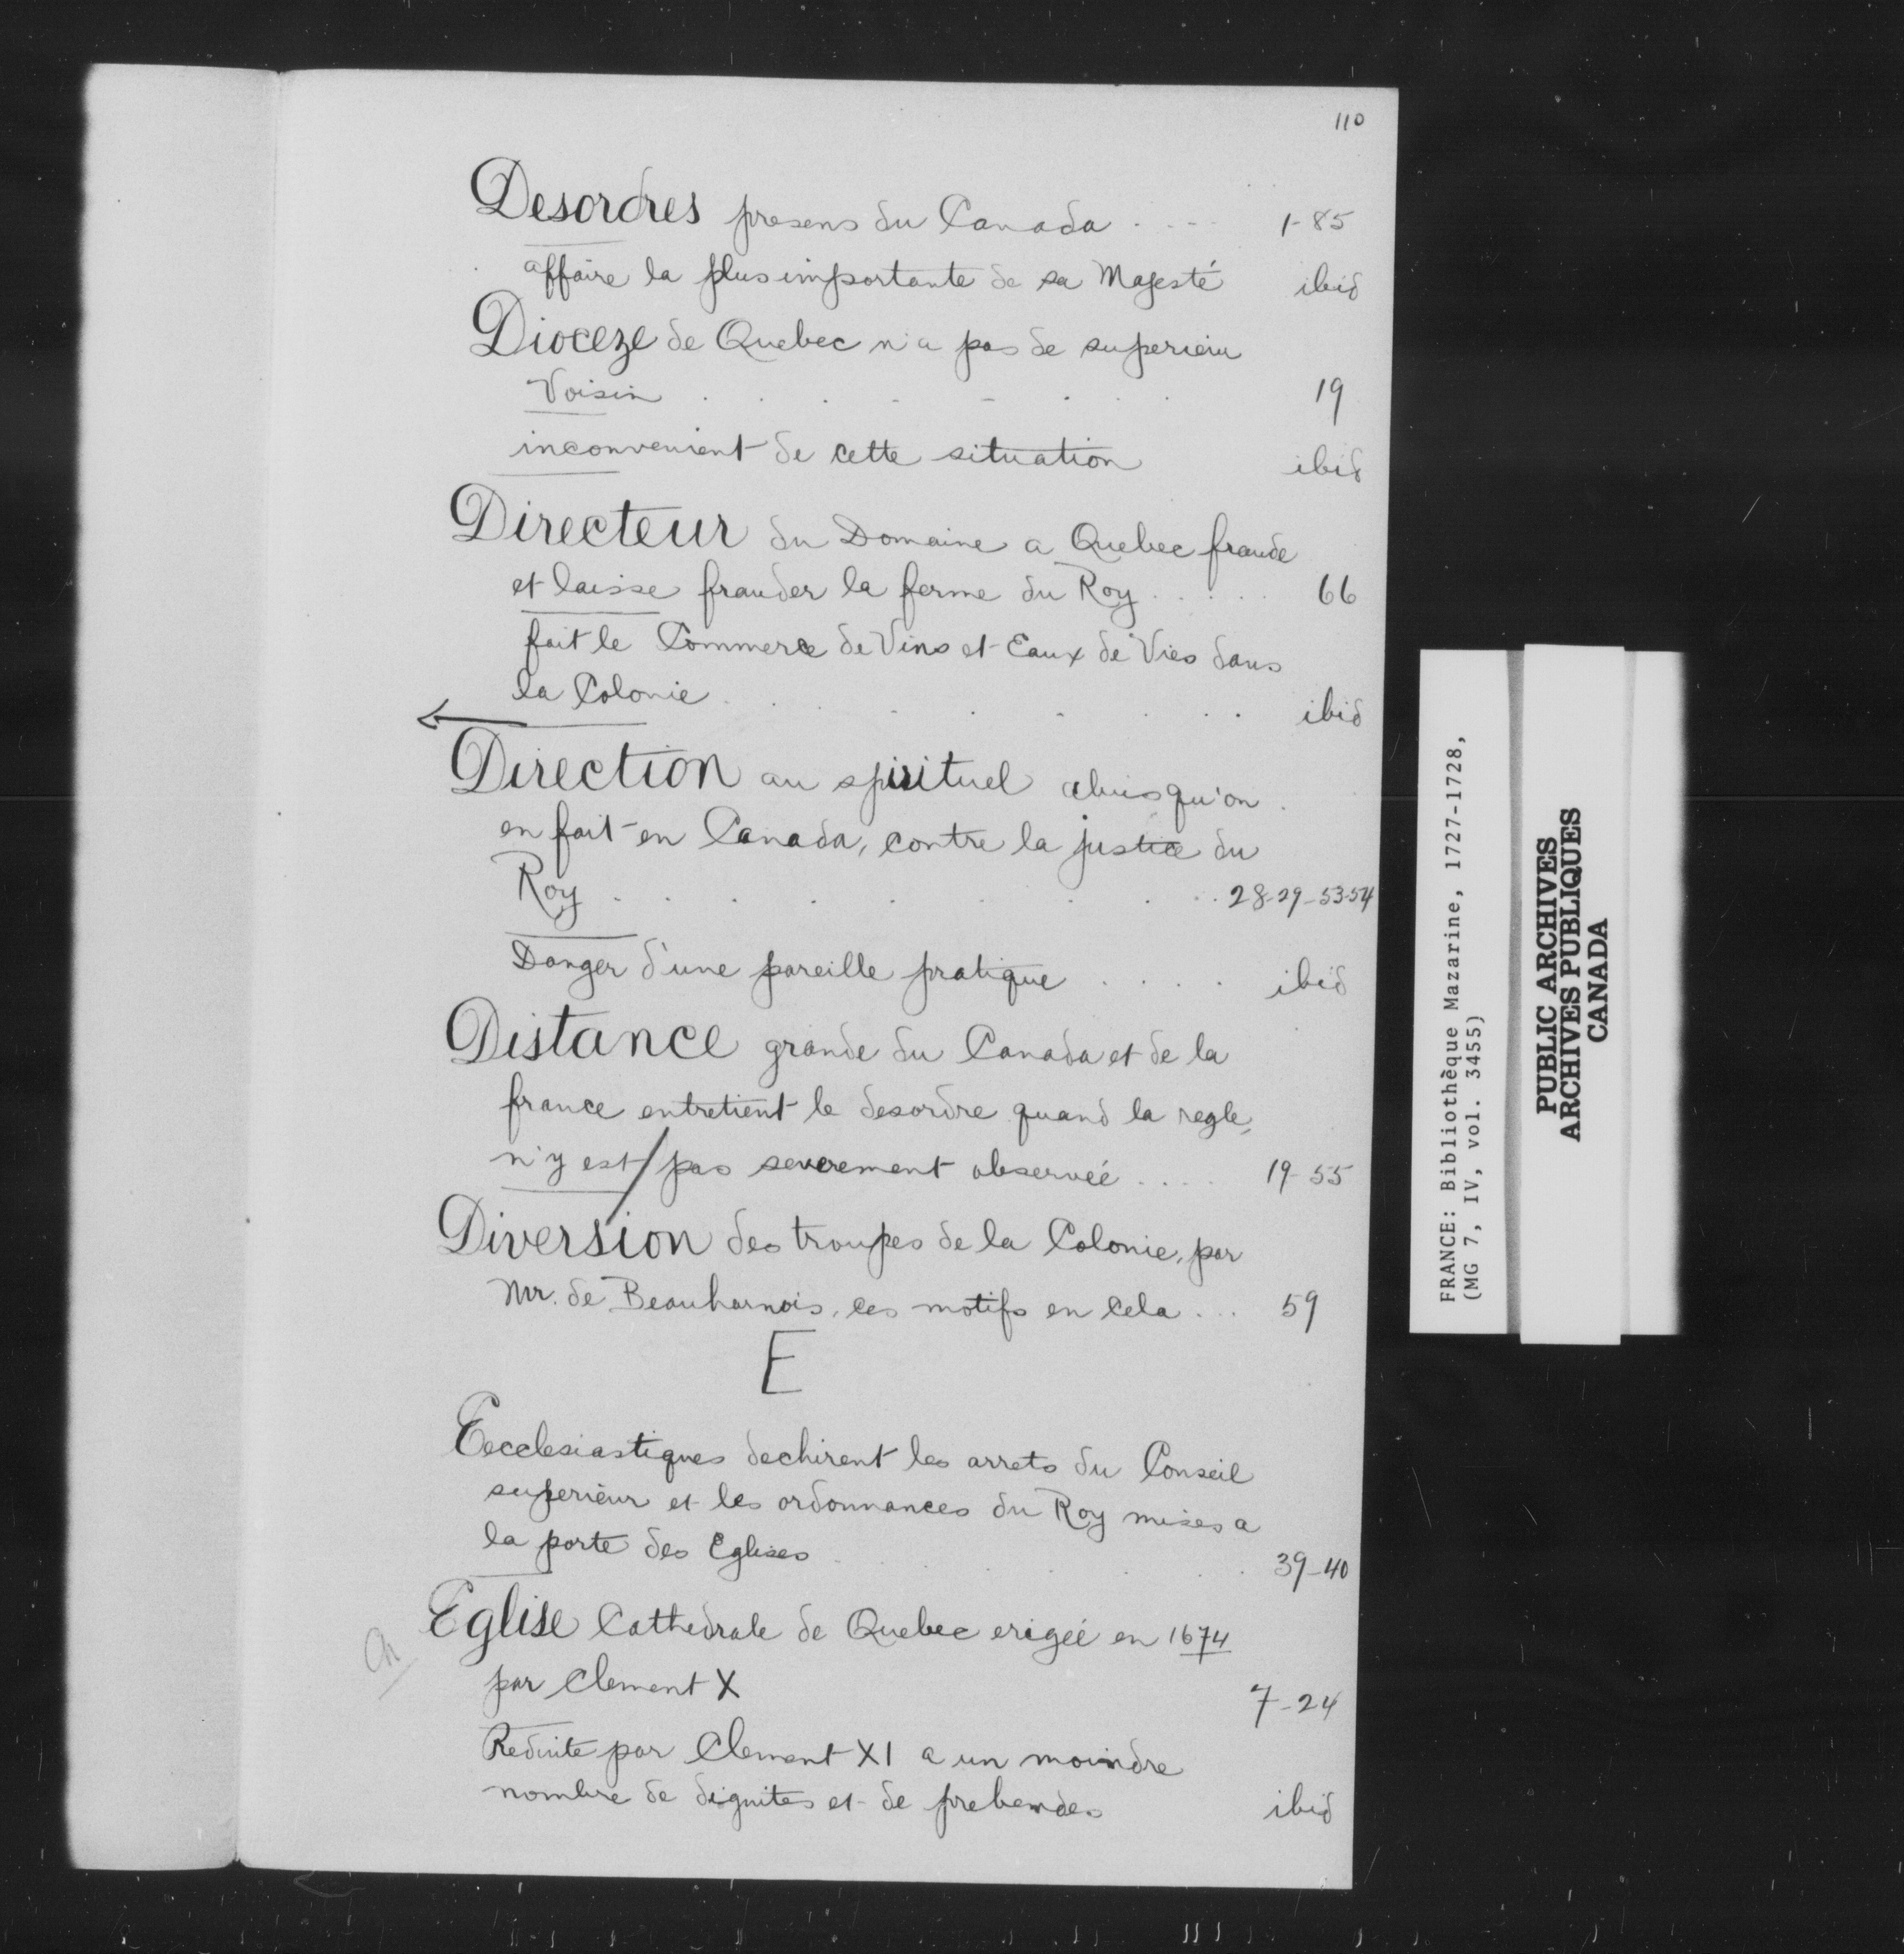 110
Desordres presens du Canada . . . . 1-85
affaire la plus importante de sa Majesté ibid
Dioceze de Quebec n'a pas de superieur
Voisin . . . . . . . 19
inconvenient de cette situation ibid
Directeur du Domaine a Quebec fraude
et laisse frauder la ferme du Roy . . . . . 66
fait le Commerce de Vins et Eaux de Vies dans
la Colonie . . . . . . . . ibid
Direction au spirituel abus qu'on
en fait en Canada, contre la justice du
Roy . . . . . . . . 28-29-53-54
Danger d'une pareille pratique . . . . ibid
Distance grande du Canada et de la
france entretient le desordre quand la regle,
n'y est / pas severement observeé . . . . 19-55
Diversion des troupes de la Colonie, par
Mr. de Beauharnois, ces motifs en cela . . . 59
E
Eccclesiastiques dechirent les arrets du Conseil
superieur et les ordonnances du Roy mises a
la porte des Eglises . . . . 39-40
Eglise Cathedrale de Quebec erigeé en 1674
Ch
par Clement X 7-24
Reduite par Clement XI a un moindre
nombre de dignites et de prebendes ibid
FRANCE: Bibliothèque Mazarine, 1727-1728,
(MG 7, IV, vol. 3455)
PUBLIC ARCHIVES
ARCHIVES PUBLIQUES
CANADA